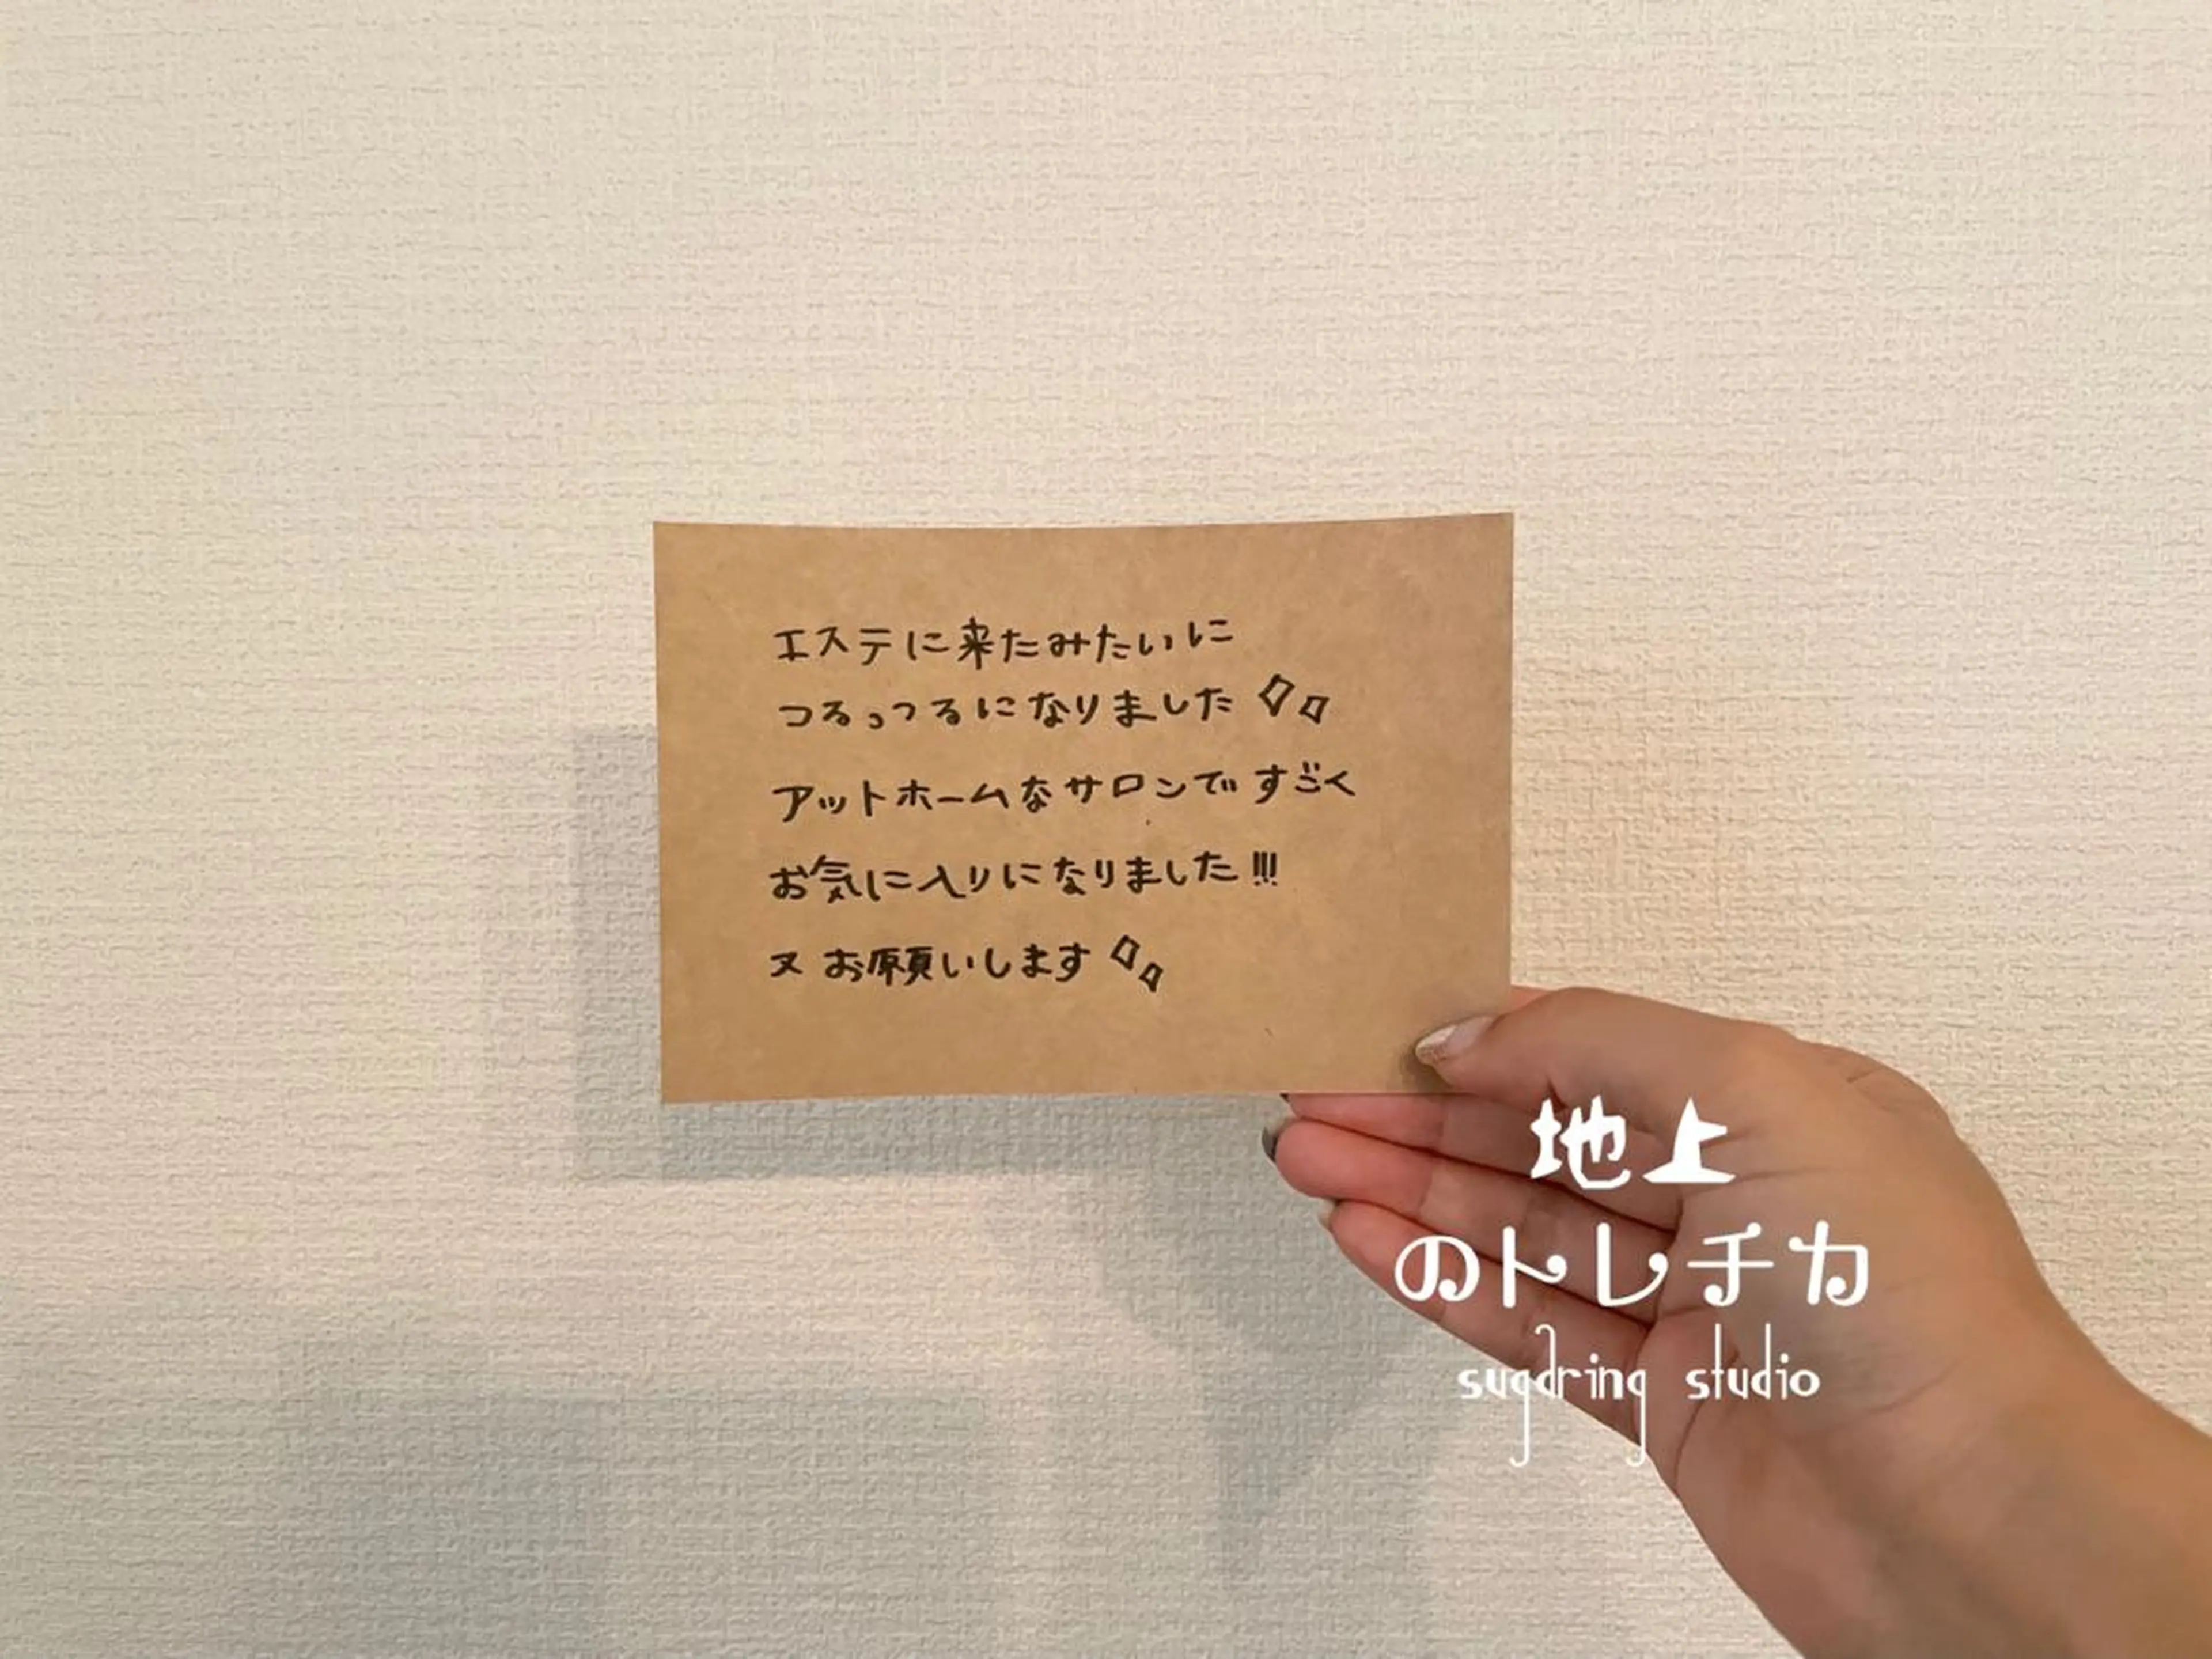 エステに来たみたいに
つるっつるになりました
アットホームなサロンですごく
お気に入りになりました!!!
又 お願いします
地上
のトレチカ
sugdring studio